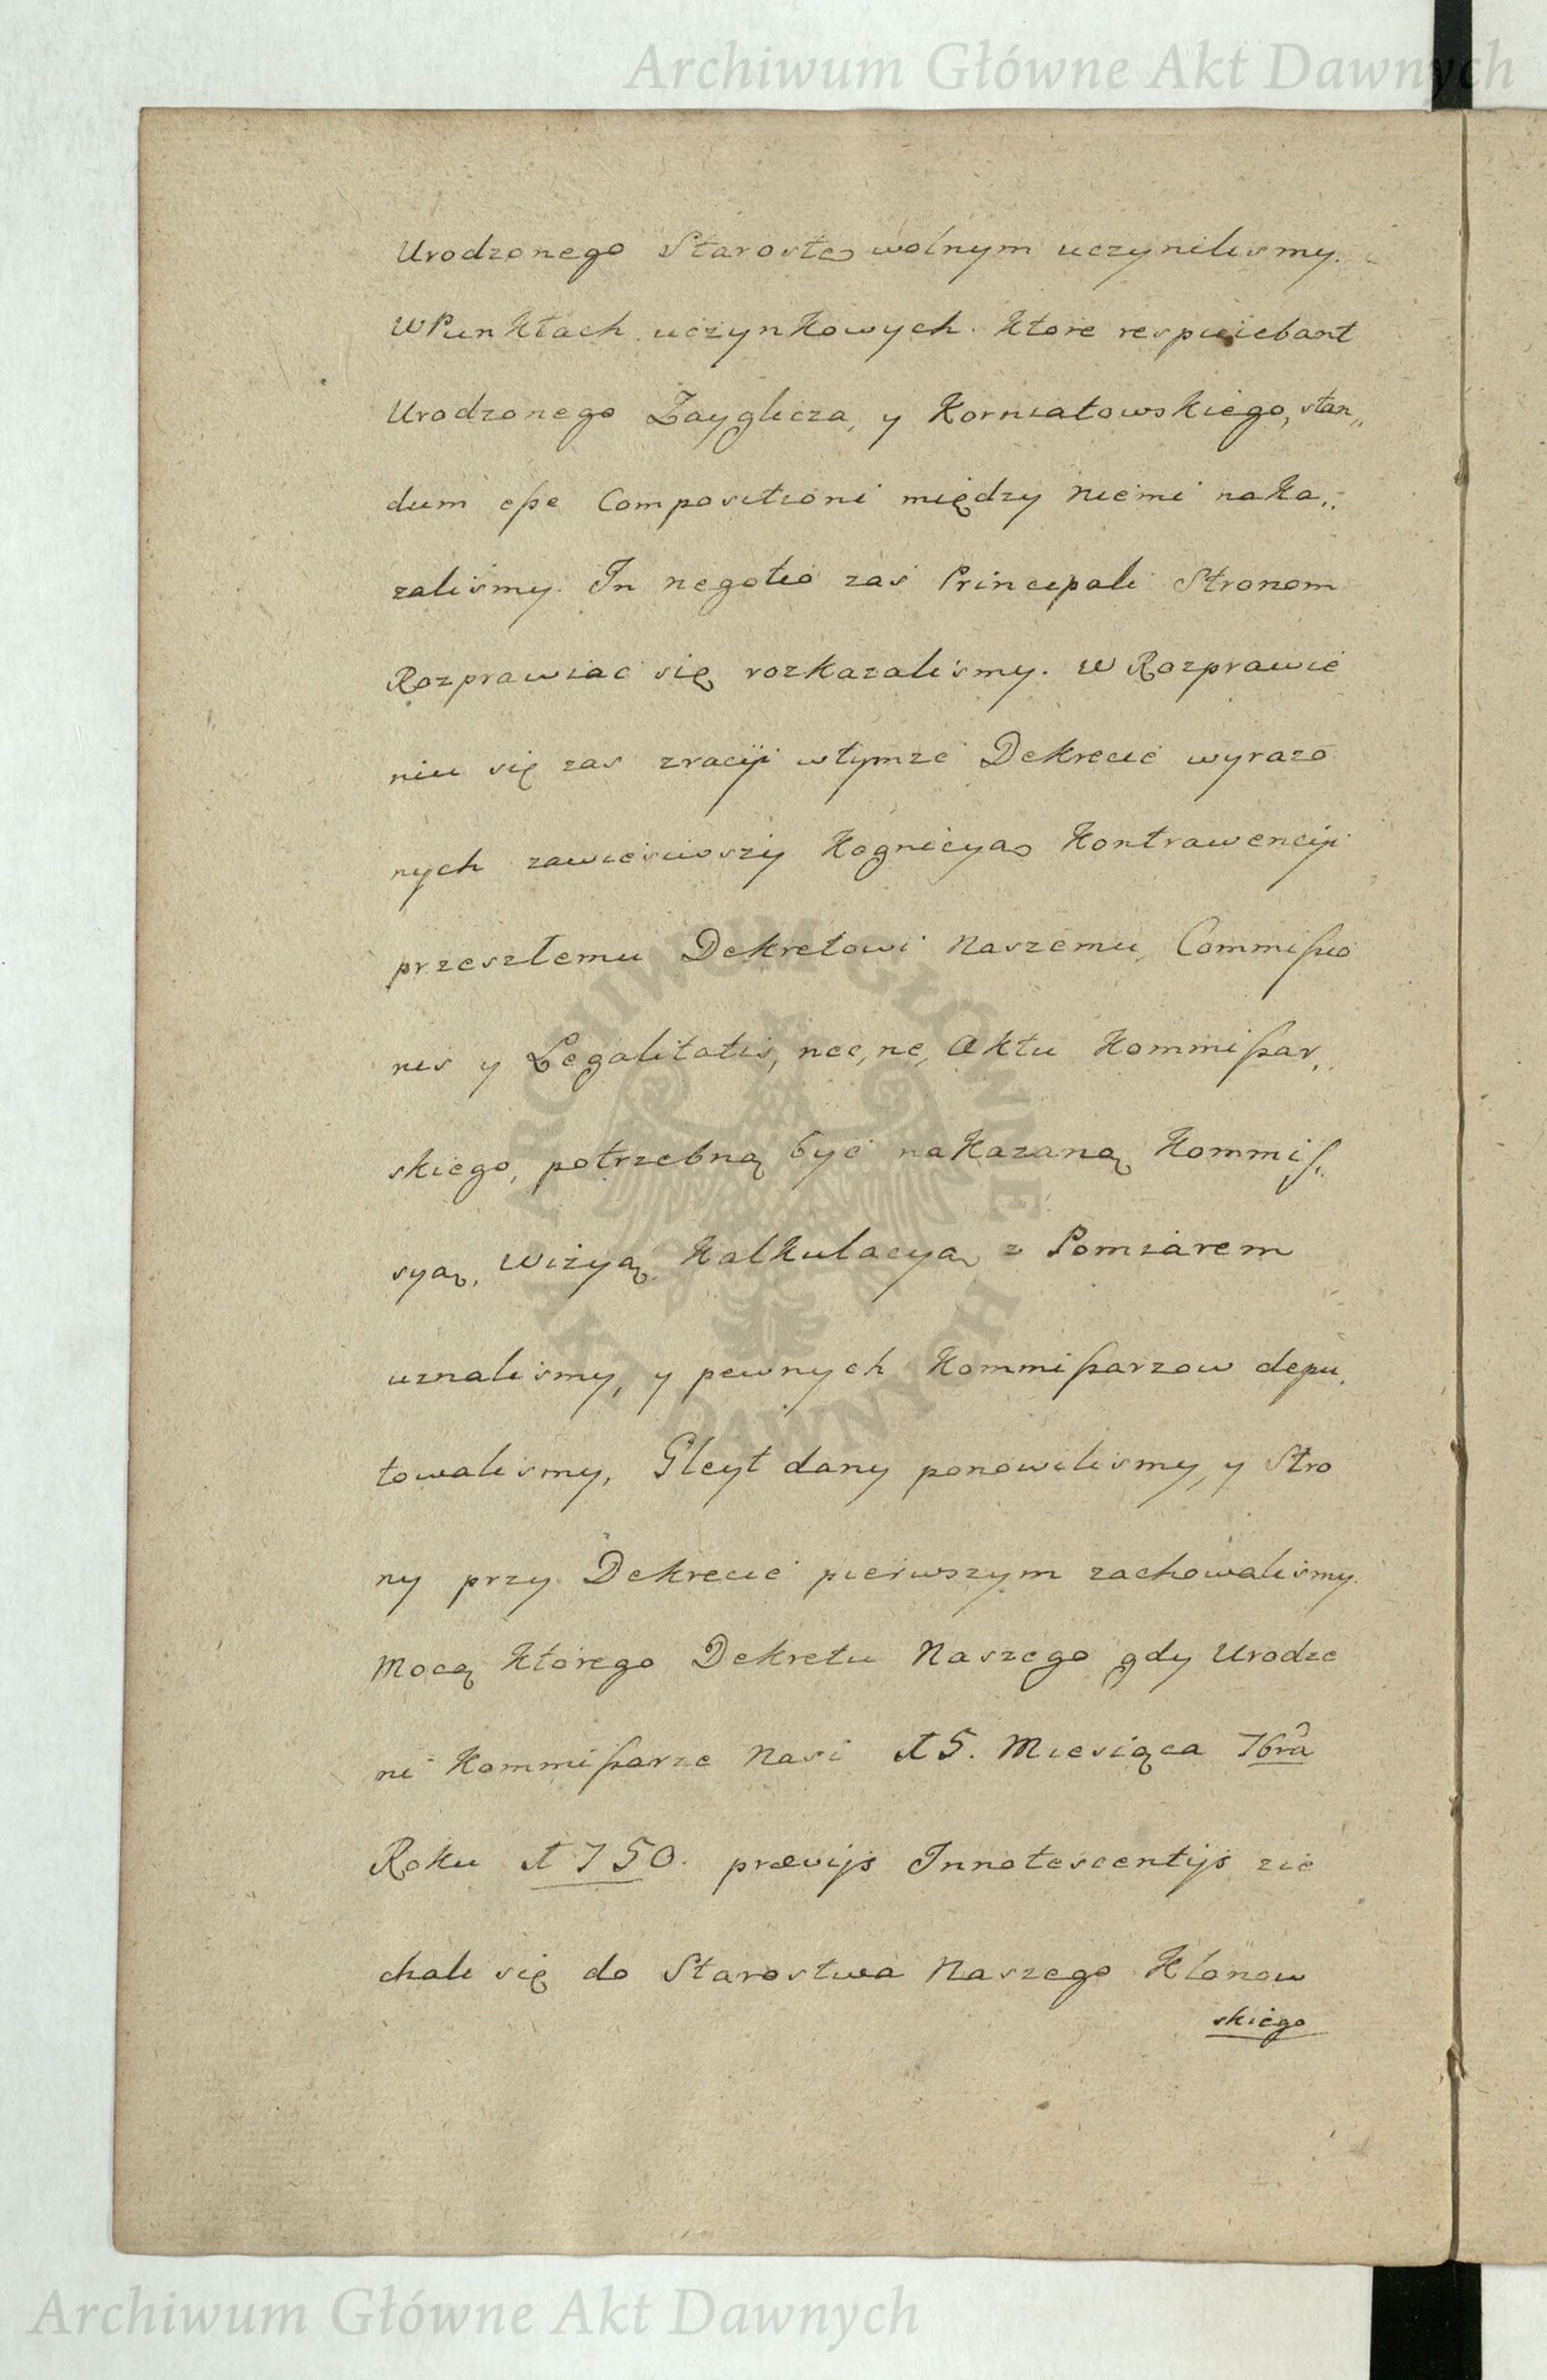 Archiwum Główne Akt Dawnych
Urodzonego Starostę wolnym uczyniliśmy.
W Punktach uczynkowych. ktore respiciebant
Urodzonego Zayglicza, y Korniatowskiego, stan„
dum eſse Compositioni między niemi naka„
zaliśmy. In negotio zaś Principali Stronom
Rozprawiac się rozkazaliśmy. W Rozprawie
niu się zas zracÿi wtymże Dekrecie wyrazo
nych zawiesiwszy Kognicyą Kontrawencÿi
przeszłemu Dekretowi Naszemu, Commiſsio
nis y Legalitatis, nec, ne, Aktu Kommiſsar„
skiego, potrzebną być nakazaną Kommiſ„
syą, Wizyą, Kalkulacyą z Pomiarem
uznaliśmy, y pewnych Kommiſsarzow depu„
towaliśmy, Gleyt dany ponowiliśmy, y Stro
ny przy Dekrecie pierwszym zachowaliśmy.
Mocą ktorego Dekretu Naszego gdy Urodze
ni Kommiſsarze Nasi 15. Miesiąca 7bra
Roku 1750. prævijs Innotescentijs zie
chali się do Starostwa Naszego Klonow
skiego
ARCHIWUM GŁÓWNE AKT DAWNYCH
Archiwum Główne Akt Dawnych